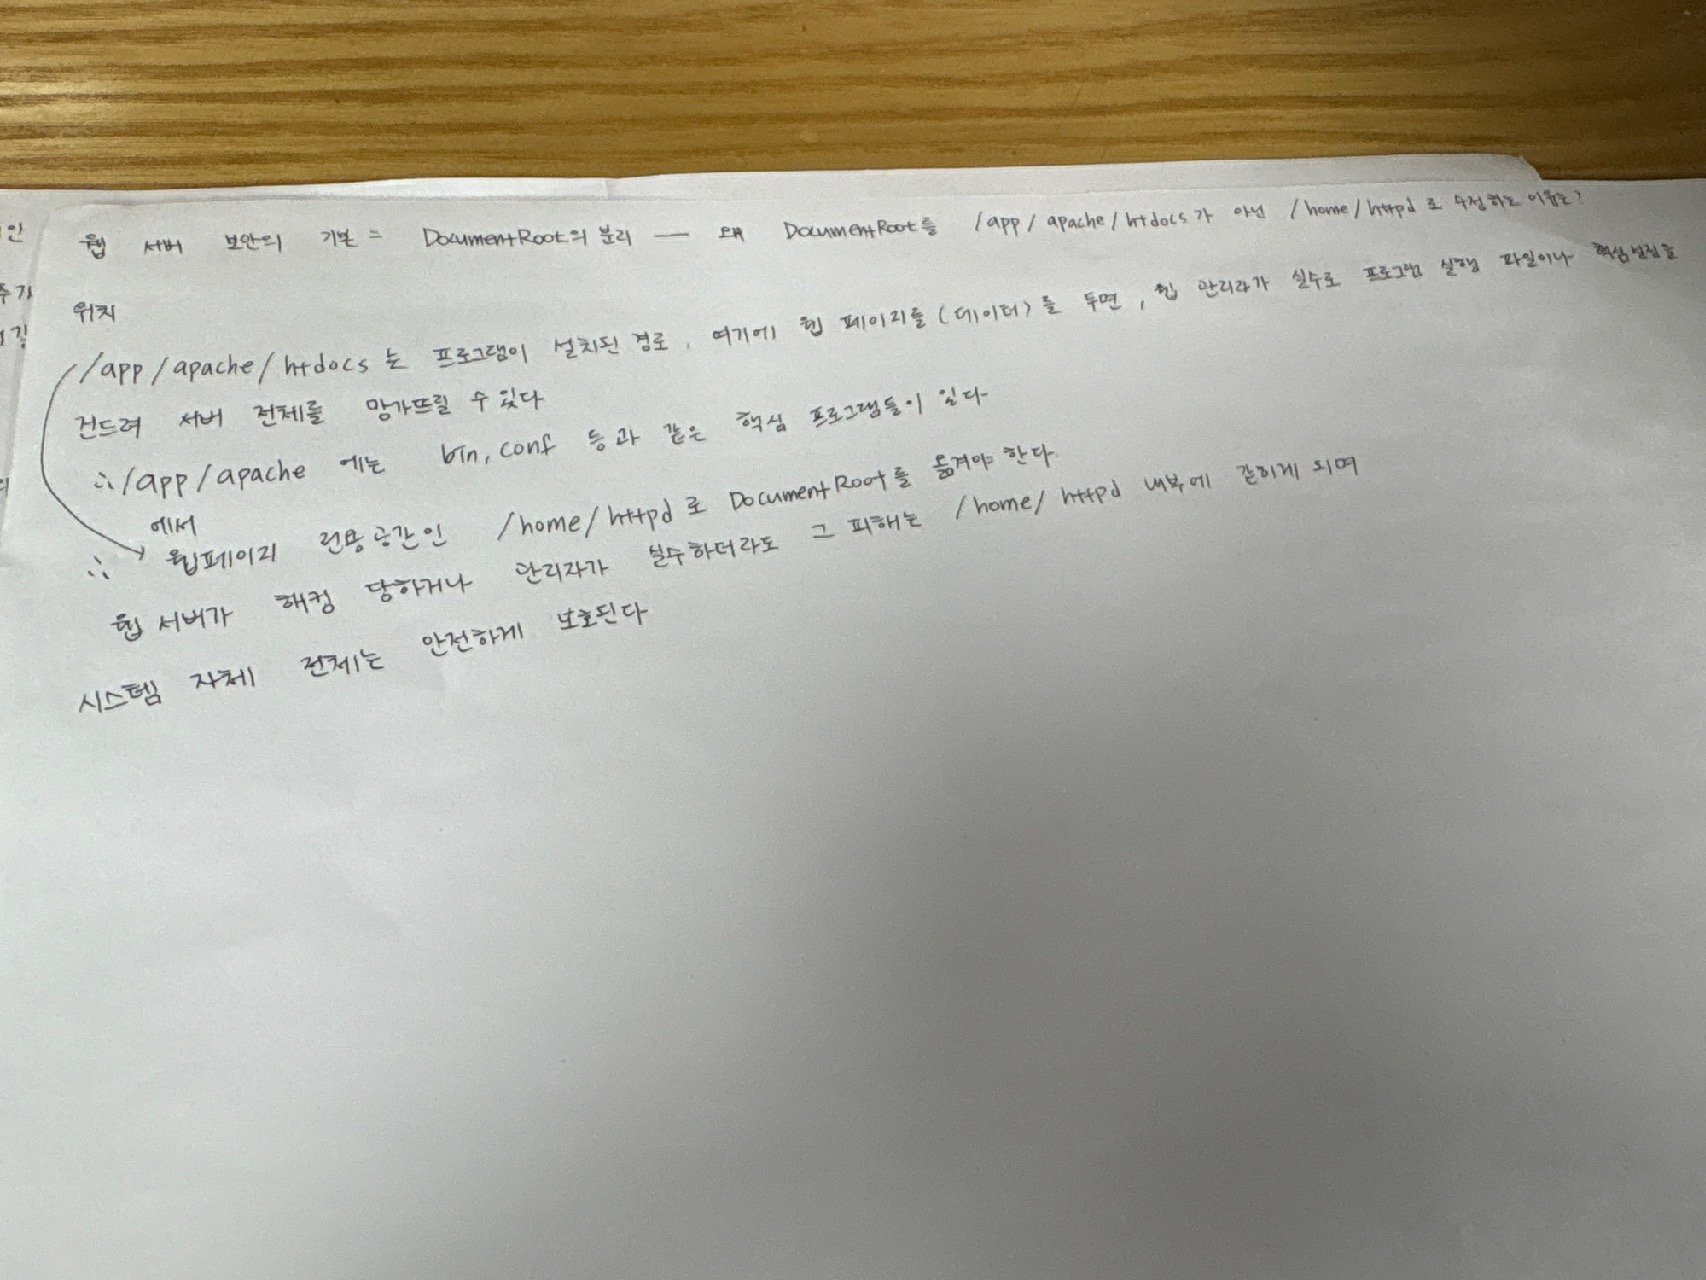 웹 서버 보안의 기본 = DocumentRoot의 분리 — DocumentRoot를 /app/apache/htdocs가 아닌 /home/httpd로 수정하는 이유는?
위치
/app/apache/htdocs는 프로그램이 설치된 경로, 여기에 웹 페이지를(데이터)를 두면, 웹 관리자가 실수로 프로그램 실행 파일이나 핵심설정을
건드려 서버 전체를 망가뜨릴 수 있다
∴ /app/apache 에는 bin, conf 등과 같은 핵심 프로그램들이 있다
에서
∴ 웹페이지 전용공간인 /home/httpd로 DocumentRoot를 옮겨야 한다.
웹 서버가 해킹 당하거나 관리자가 실수하더라도 그 피해는 /home/httpd 내부에 갇히게 되며
시스템 자체 전체는 안전하게 보호된다